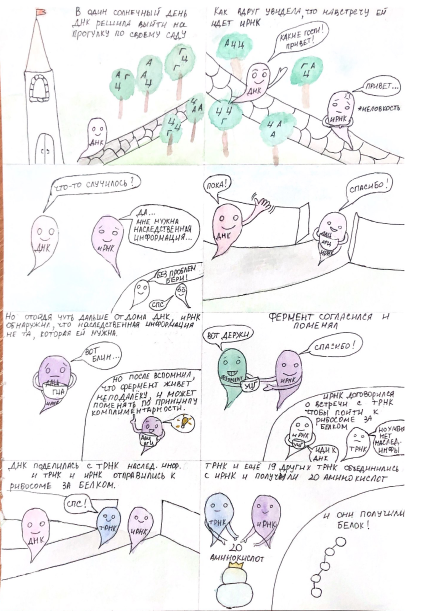 В ОДИН СОЛНЕЧНЫЙ ДЕНЬ
ДНК РЕШИЛА ВЫЙТИ НА
ПРОГУЛКУ ПО СВОЕМУ САДУ
ДНК
КАК ВДРУГ УВИДЕЛА, ЧТО НАВСТРЕЧУ ЕЙ
ИДЕТ ИРНК
КАКИЕ ГОСТИ!
ПРИВЕТ!
ДНК
ПРИВЕТ...
#НЕЛОВКОСТЬ
ИРНК
ЧТО-ТО СЛУЧИЛОСЬ?
ДНК
ДА...
МНЕ НУЖНА
НАСЛЕДСТВЕННАЯ
ИНФОРМАЦИЯ...
ИРНК
БЕЗ ПРОБЛЕМ
БЕРИ!
СПС
ПОКА!
ДНК
СПАСИБО!
ИРНК
НО ОТОЙДЯ ЧУТЬ ДАЛЬШЕ ОТ ДОМА ДНК, ИРНК
ОБНАРУЖИЛ, ЧТО НАСЛЕДСТВЕННАЯ ИНФОРМАЦИЯ
НЕ ТА, КОТОРАЯ ЕЙ НУЖНА.
ВОТ
БЛИН...
НО ПОСЛЕ ВСПОМНИЛ,
ЧТО ФЕРМЕНТ ЖИВЕТ
НЕПОДАЛЕКУ И МОЖЕТ
ПОМЕНЯТЬ ПО ПРИНЦИПУ
КОМПЛИМЕНТАРНОСТИ.
ФЕРМЕНТ СОГЛАСИЛСЯ И
ПОМЕНЯЛ
ВОТ ДЕРЖИ
СПАСИБО!
ФЕРМЕНТ
ИРНК
ИРНК ДОГОВОРИЛСЯ
О ВСТРЕЧИ С ТРНК
ЧТОБЫ ПОЙТИ К
РИБОСОМЕ ЗА
БЕЛКОМ
ИДИ К
ДНК
ТРНК
НО У МЕНЯ
НЕТ
НАСЛЕД.
ИНФЫ
ДНК ПОДЕЛИЛАСЬ С ТРНК НАСЛЕД. ИНФ.
И ТРНК И ИРНК ОТПРАВИЛИСЬ К
РИБОСОМЕ ЗА БЕЛКОМ.
СПС!
ДНК
ТРНК
ИРНК
ТРНК И ЕЩЁ 19 ДРУГИХ ТРНК ОБЪЕДИНИЛИСЬ
С ИРНК И ПОЛУЧИЛИ 20 АМИНОКИСЛОТ
ТРНК
ИРНК
20
АМИНОКИСЛОТ
И ОНИ ПОЛУЧИЛИ
БЕЛОК!